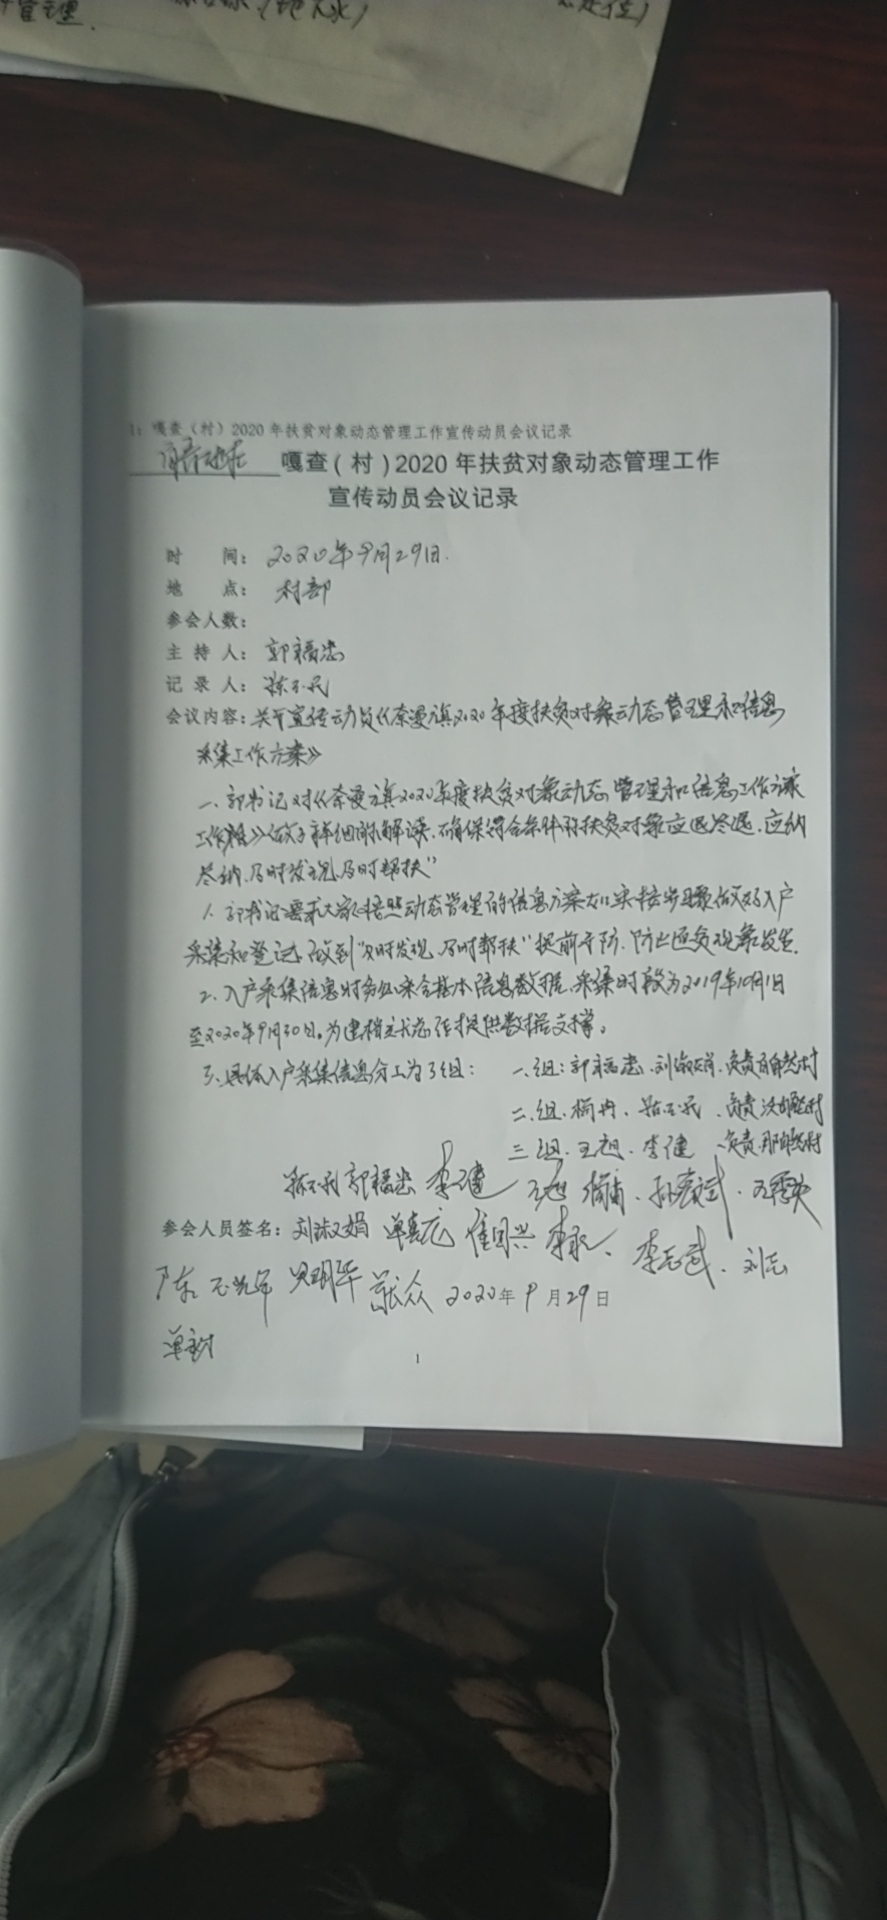 管理
1：嘎查（村）2020年扶贫对象动态管理工作宣传动员会议记录
嘎查（村）2020年扶贫对象动态管理工作
宣传动员会议记录
时 间：2020年9月29日.
地 点：村部
参会人数：
主 持 人：郭福忠
记 录 人：
会议内容：关于宣传动员《奈曼旗2020年度扶贫对象动态管理和信息
采集工作方案》
一、郭书记对《奈曼旗2020年度扶贫对象动态管理和信息工作方案
》做了详细的解读.确保符合条件的扶贫对象应退尽退.应纳
尽纳.及时发现.及时帮扶"
1、郭书记要求大家按照动态管理的信息方案 按步骤做好入户
采集和登记.做到"及时发现.及时帮扶"提前 防.防止返贫现象发生.
2、入户采集信息时务必采全基本信息数据.采集时段为2019年10月1日
至2020年9月30日。为建档立 提供数据支撑。
3、具体入户采集信息分工为3组： 一组：郭福忠.刘淑娟.负责 自然村
二.组.杨冉. 负责 自然村
三组.王旭.李健 负责 自然村
郭福忠 李健 王旭
参会人员签名：刘淑娟 单喜龙 崔国兴 李 李志武. 刘志
陈 2020年9月29日
1